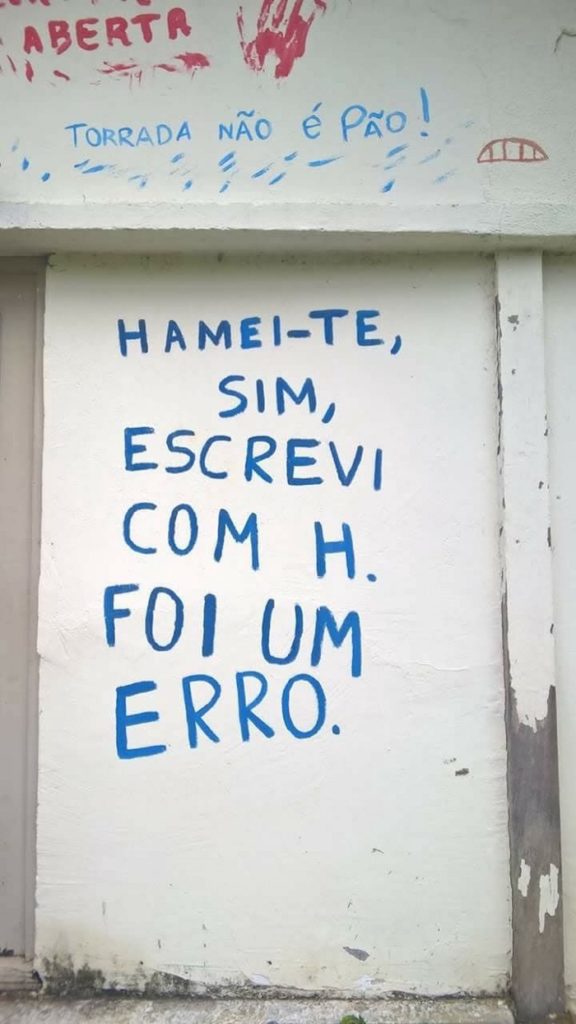 ABERTA
TORRADA NÃO é PÃO!
HAMEI-TE,
SIM,
ESCREVI
COM H.
FOI UM
ERRO.